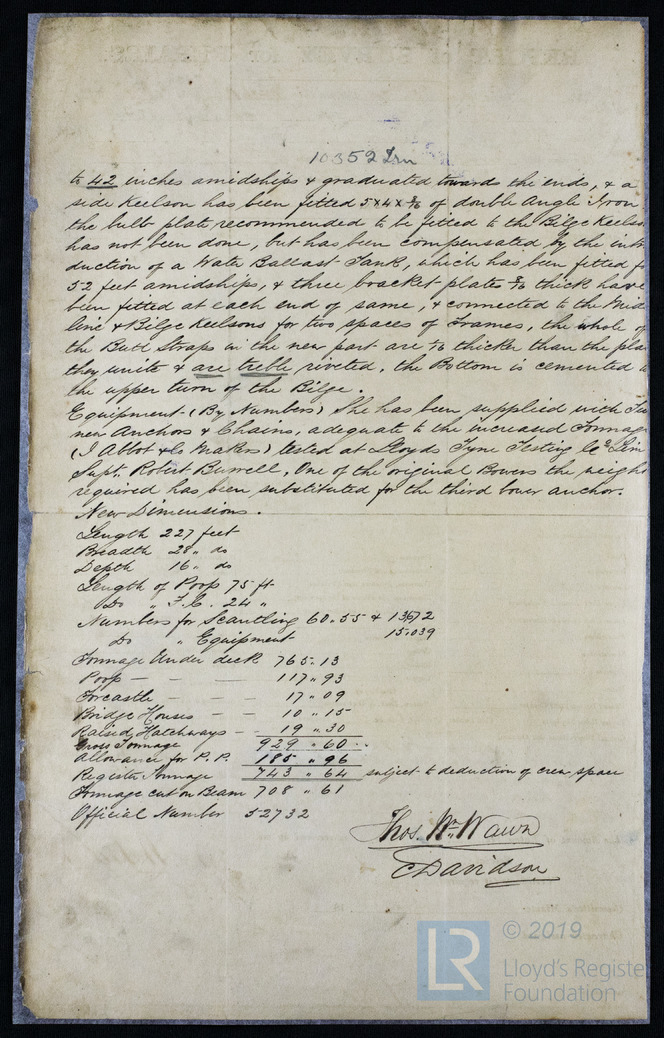 10352 Irn
to 42 inches amidships & graduated towards the ends, & a
side Keelson has been fitted 5x4x 8/16 of double Angle Iron
the bulb plate recommended to be fitted to the Bilge Keelso
has not been done, but has been compensated by the intr
duction of a Water Ballast Tank, which has been fitted f
52 feet amidships, & three bracket plates thick have
been fitted at each end of same, & connected to the Mid
line & Bilge Keelsons for two spaces of Frames, the whole of
the Butt Straps in the new part are thicker than the pla
they unite & are treble riveted, the Bottom is cemented t
the upper turn of the Bilge.
Equipment (By Numbers) She has been supplied with
new Anchors & Chains, adequate to the increased Tonnage
(J Abbot & Co Makers) tested at Lloyds Tyne Testing Co Lim
Supt. Robert Burrell, One of the original Bowers the weight
required has been substituted for the third bower anchor.
New Dimensions.
Length 227 feet
Breadth 28 " do
Depth 16 " do
Length of Poop 75 ft
Do " F.C. 24 "
Numbers for Scantling 60.55 & 13672
Do " Equipment 15.039
Tonnage Under deck 765.13
Poop — — — 117 " 93
Forcastle — — — 17 " 09
Bridge Houses — — 10 " 15
Raised Hatchways — 19 " 30
Gross Tonnage 929 " 60
Allowance for P.P. 185 " 96
Register Tonnage 743 " 64 subject to deduction of crew space
Tonnage cut on Beam 708 " 61
Official Number 52732
Thos. Wm. Wawn
C Davidson
LR © 2019
Lloyd's Registe
Foundation